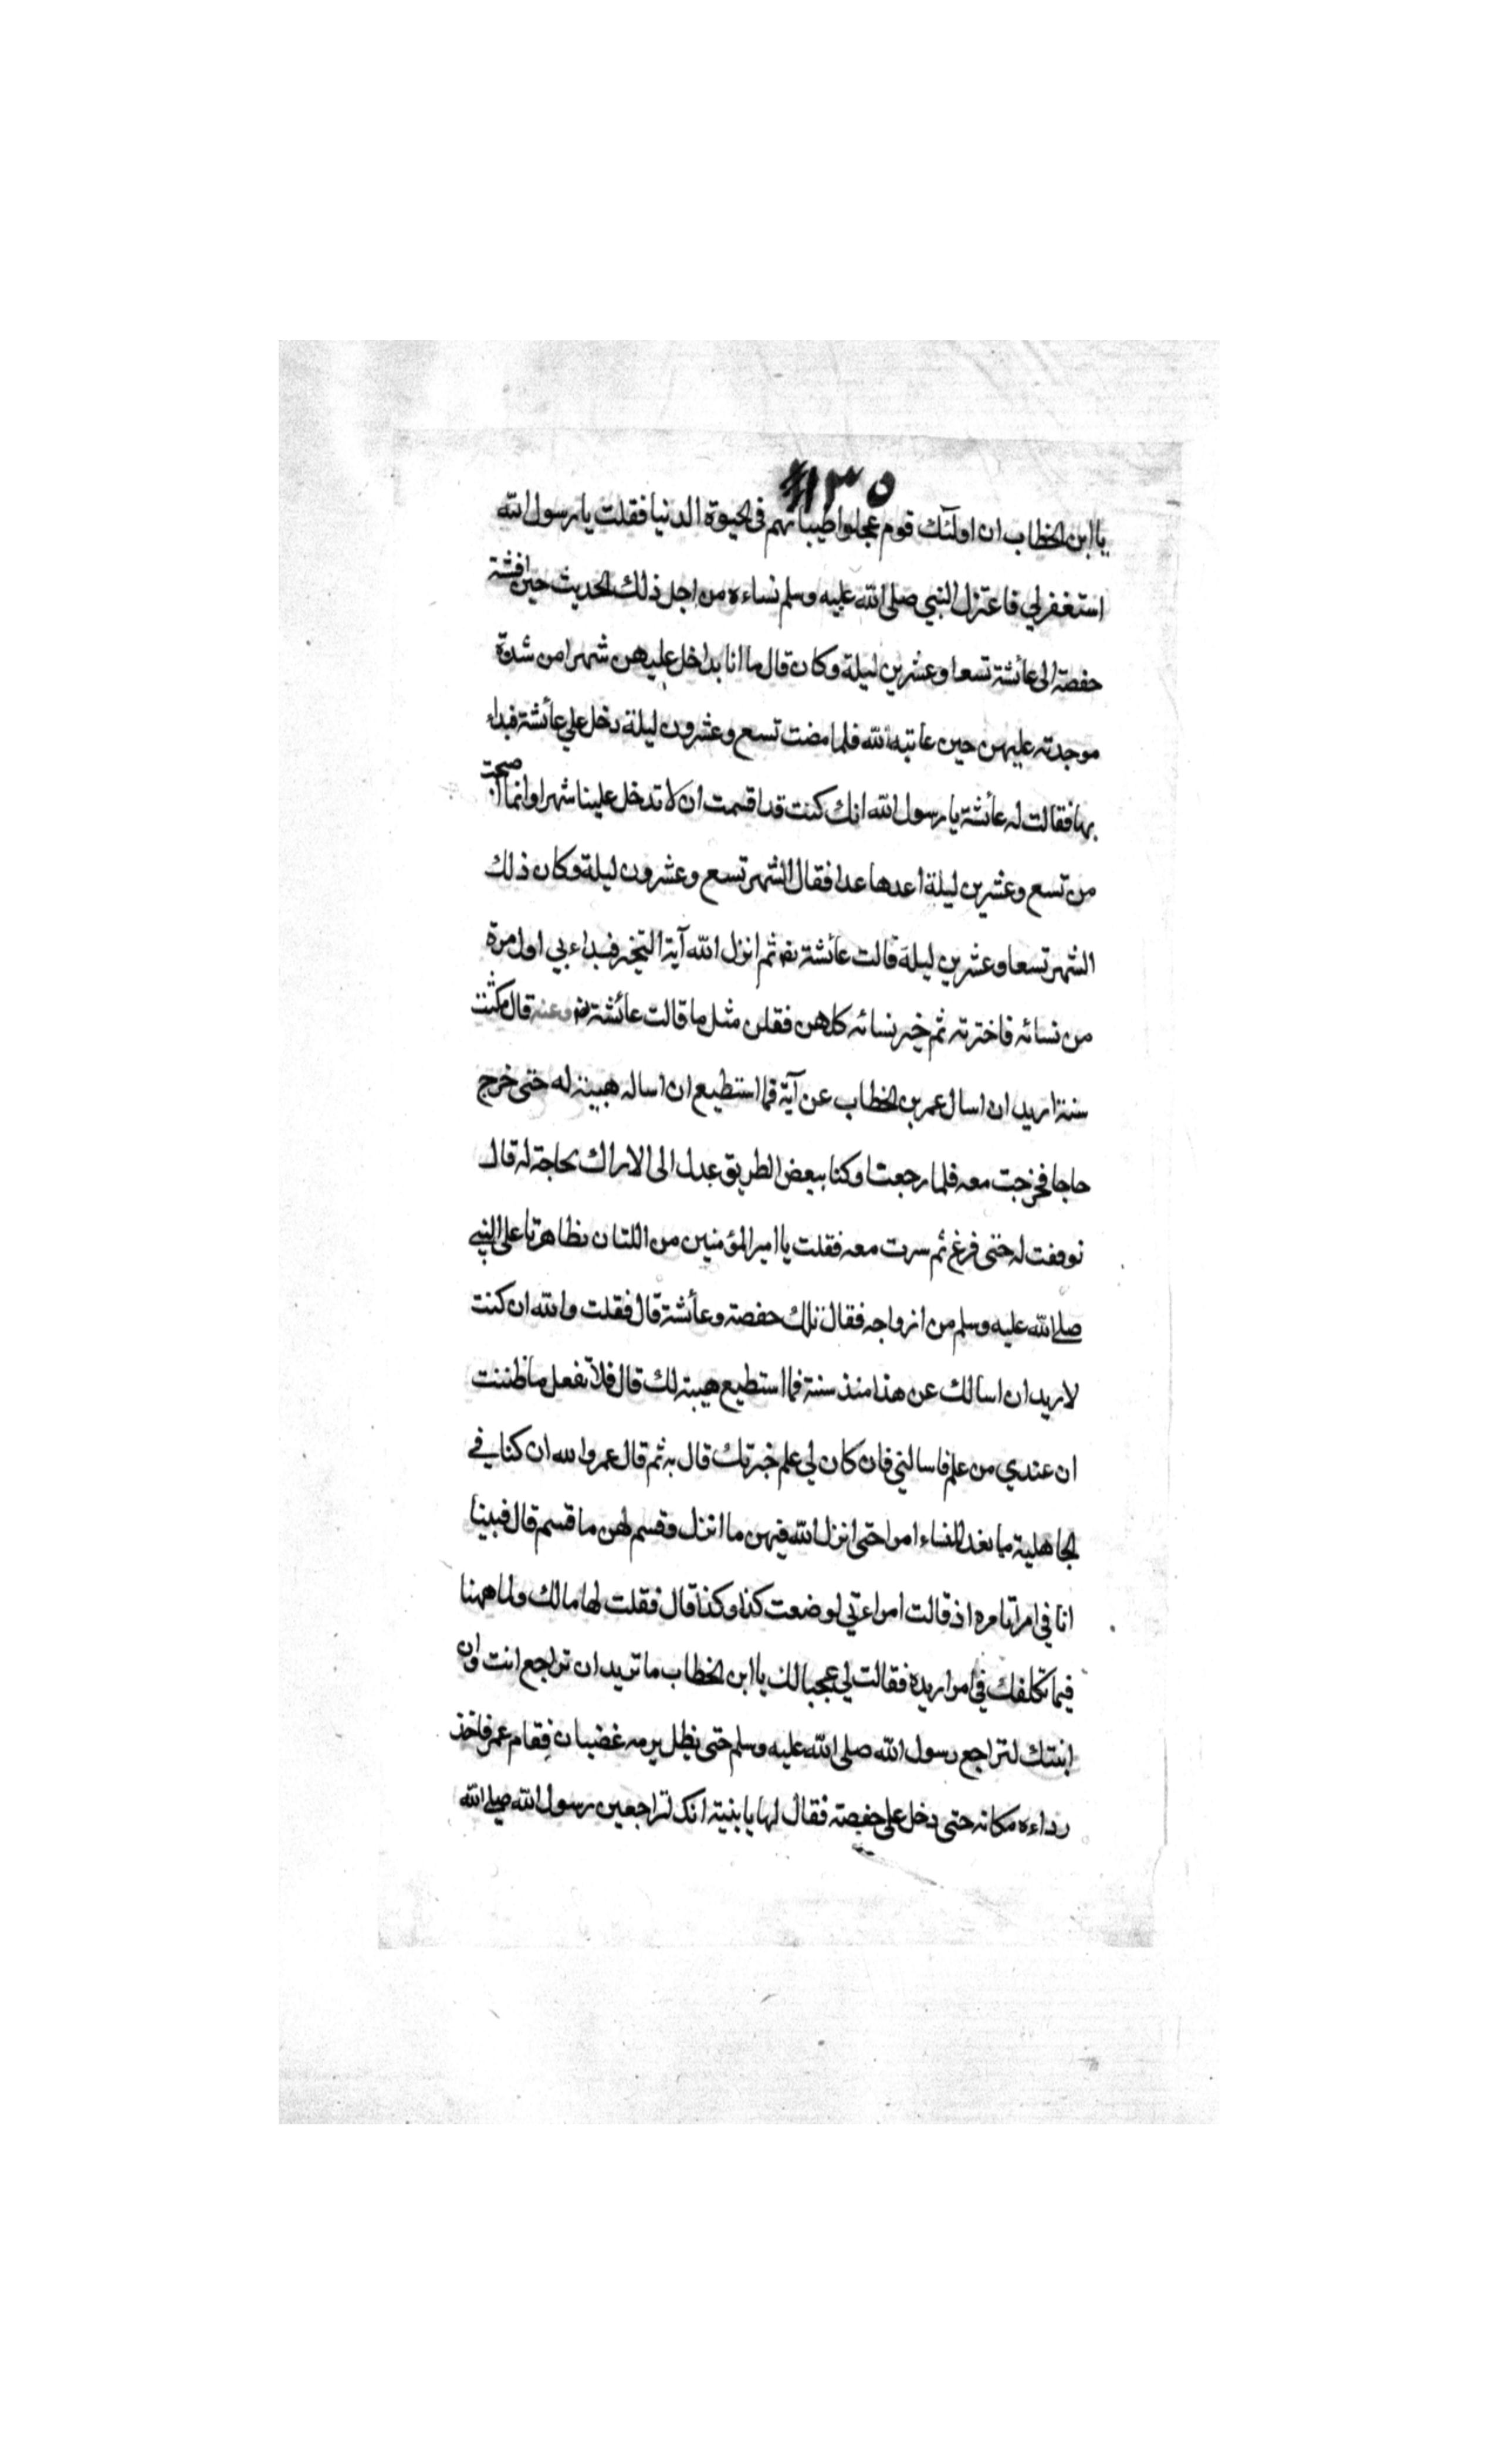 ١٣٥
يا ابن الخطاب ان اولئك قوم عجلوا طيباتهم في الحيوة الدنيا فقلت يا رسول الله
استغفرلي فاعتزل النبي صلى الله عليه وسلم نساءه من اجل ذلك الحديث حين افشته
حفصة الى عائشة تسعا وعشرين ليلة وكان قال ما انا بداخل عليهن شهرا من شدة
موجدته عليهن حين عاتبه الله فلما مضت تسع وعشرون ليلة دخل علي عائشة فبداء
بها فقالت له عائشة يا رسول الله انك كنت قد اقسمت ان لا تدخل علينا شهرا وانما اصبحت
من تسع وعشرين ليلة اعدها عدا فقال الشهر تسع وعشرون ليلة وكان ذلك
الشهر تسعا وعشرين ليلة قالت عائشة رض ثم انزل الله آية التخير فبداء بي اول مرة
من نسائه فاخترته ثم خير نسائه كلهن فقلن مثل ما قالت عائشة رض وعنه قال مكثت
سنة اريد ان اسال عمر بن الخطاب عن آية فما استطيع ان اساله هيبة له حتى خرج
حاجا فخرجت معه فلما رجعت وكنا ببعض الطريق عدل الى الاراك لحاجة له قال
فوقفت له حتى فرغ ثم سرت معه فقلت يا امير المؤمنين من اللتان تظاهرتا على النبي
صلى الله عليه وسلم من ازواجه فقال تلك حفصة وعائشة قال فقلت والله ان كنت
لاريد ان اسالك عن هذا منذ سنة فما استطيع هيبة لك قال فلا تفعل ما ظننت
ان عندي من علم فاسالني فان كان لي علم خبرتك قال به ثم قال عمر والله ان كنا في
الجاهلية ما نعد للنساء امرا حتى انزل الله فيهن ما انزل وقسم لهن ما قسم قال فبينا
انا في امر اتامره اذ قالت امراءتي لو ضعت كذا وكذا قال فقلت لها مالك ولما ههنا
فيما تكلفك في امر اريده فقالت لي عجبا لك يا ابن الخطاب ما تريد ان تراجع انت وان
ابنتك لتراجع رسول الله صلى الله عليه وسلم حتى يظل يومه غضبان فقام عمر فاخذ
رداءه مكانه حتى دخل على حفصة فقال لها يا بنية انك لتراجعين رسول الله صلى الله